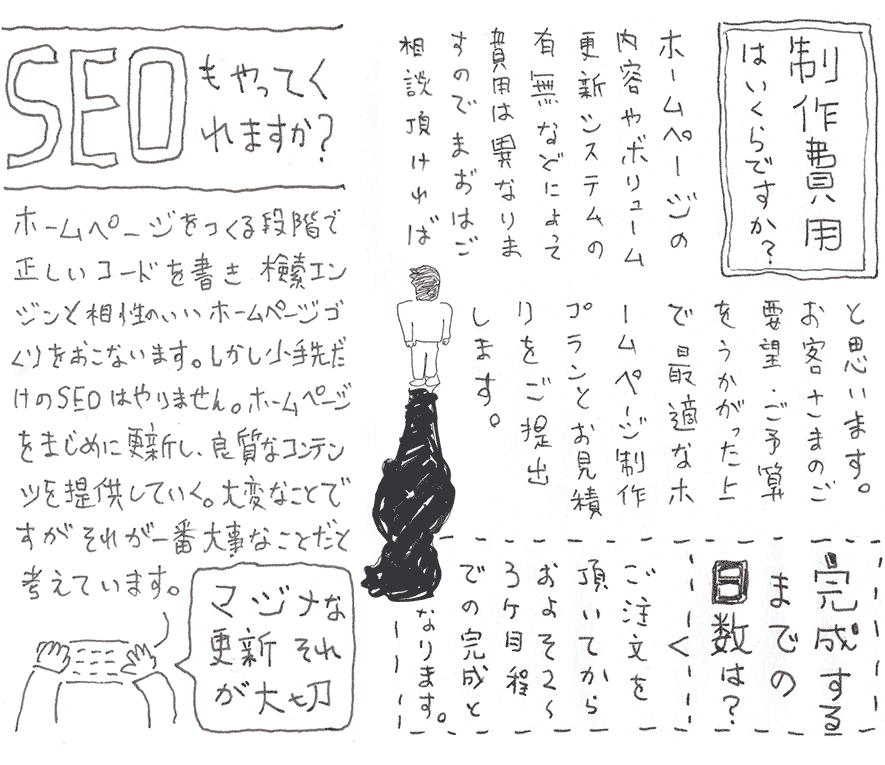 制作費用
はいくらですか?
ホームページの
内容やボリューム
更新システムの
有無などによって
費用は異なりま
すのでまおはご
相談頂ければ
と思います。
お客さまのご
要望・ご予算
をうかがった上
で最適なホ
ームページ制作
プランとお見積
りをご提出
します。
完成する
までの
日数は?
ご注文を
頂いてから
およそ2〜
3ケ月程
での完成と
なります。
SEOもやってく
れますか?
ホームページをつくる段階で
正しいコードを書き 検索エン
ジンと相性のいいホームページづ
くりをおこないます。しかし小手先だ
けのSEOはやりません。ホームページ
をまじめに更新し、良質なコンテン
ツを提供していく。大変なことで
すがそれが一番大事なことだと
考えています。
マジメな
更新 それ
が大切